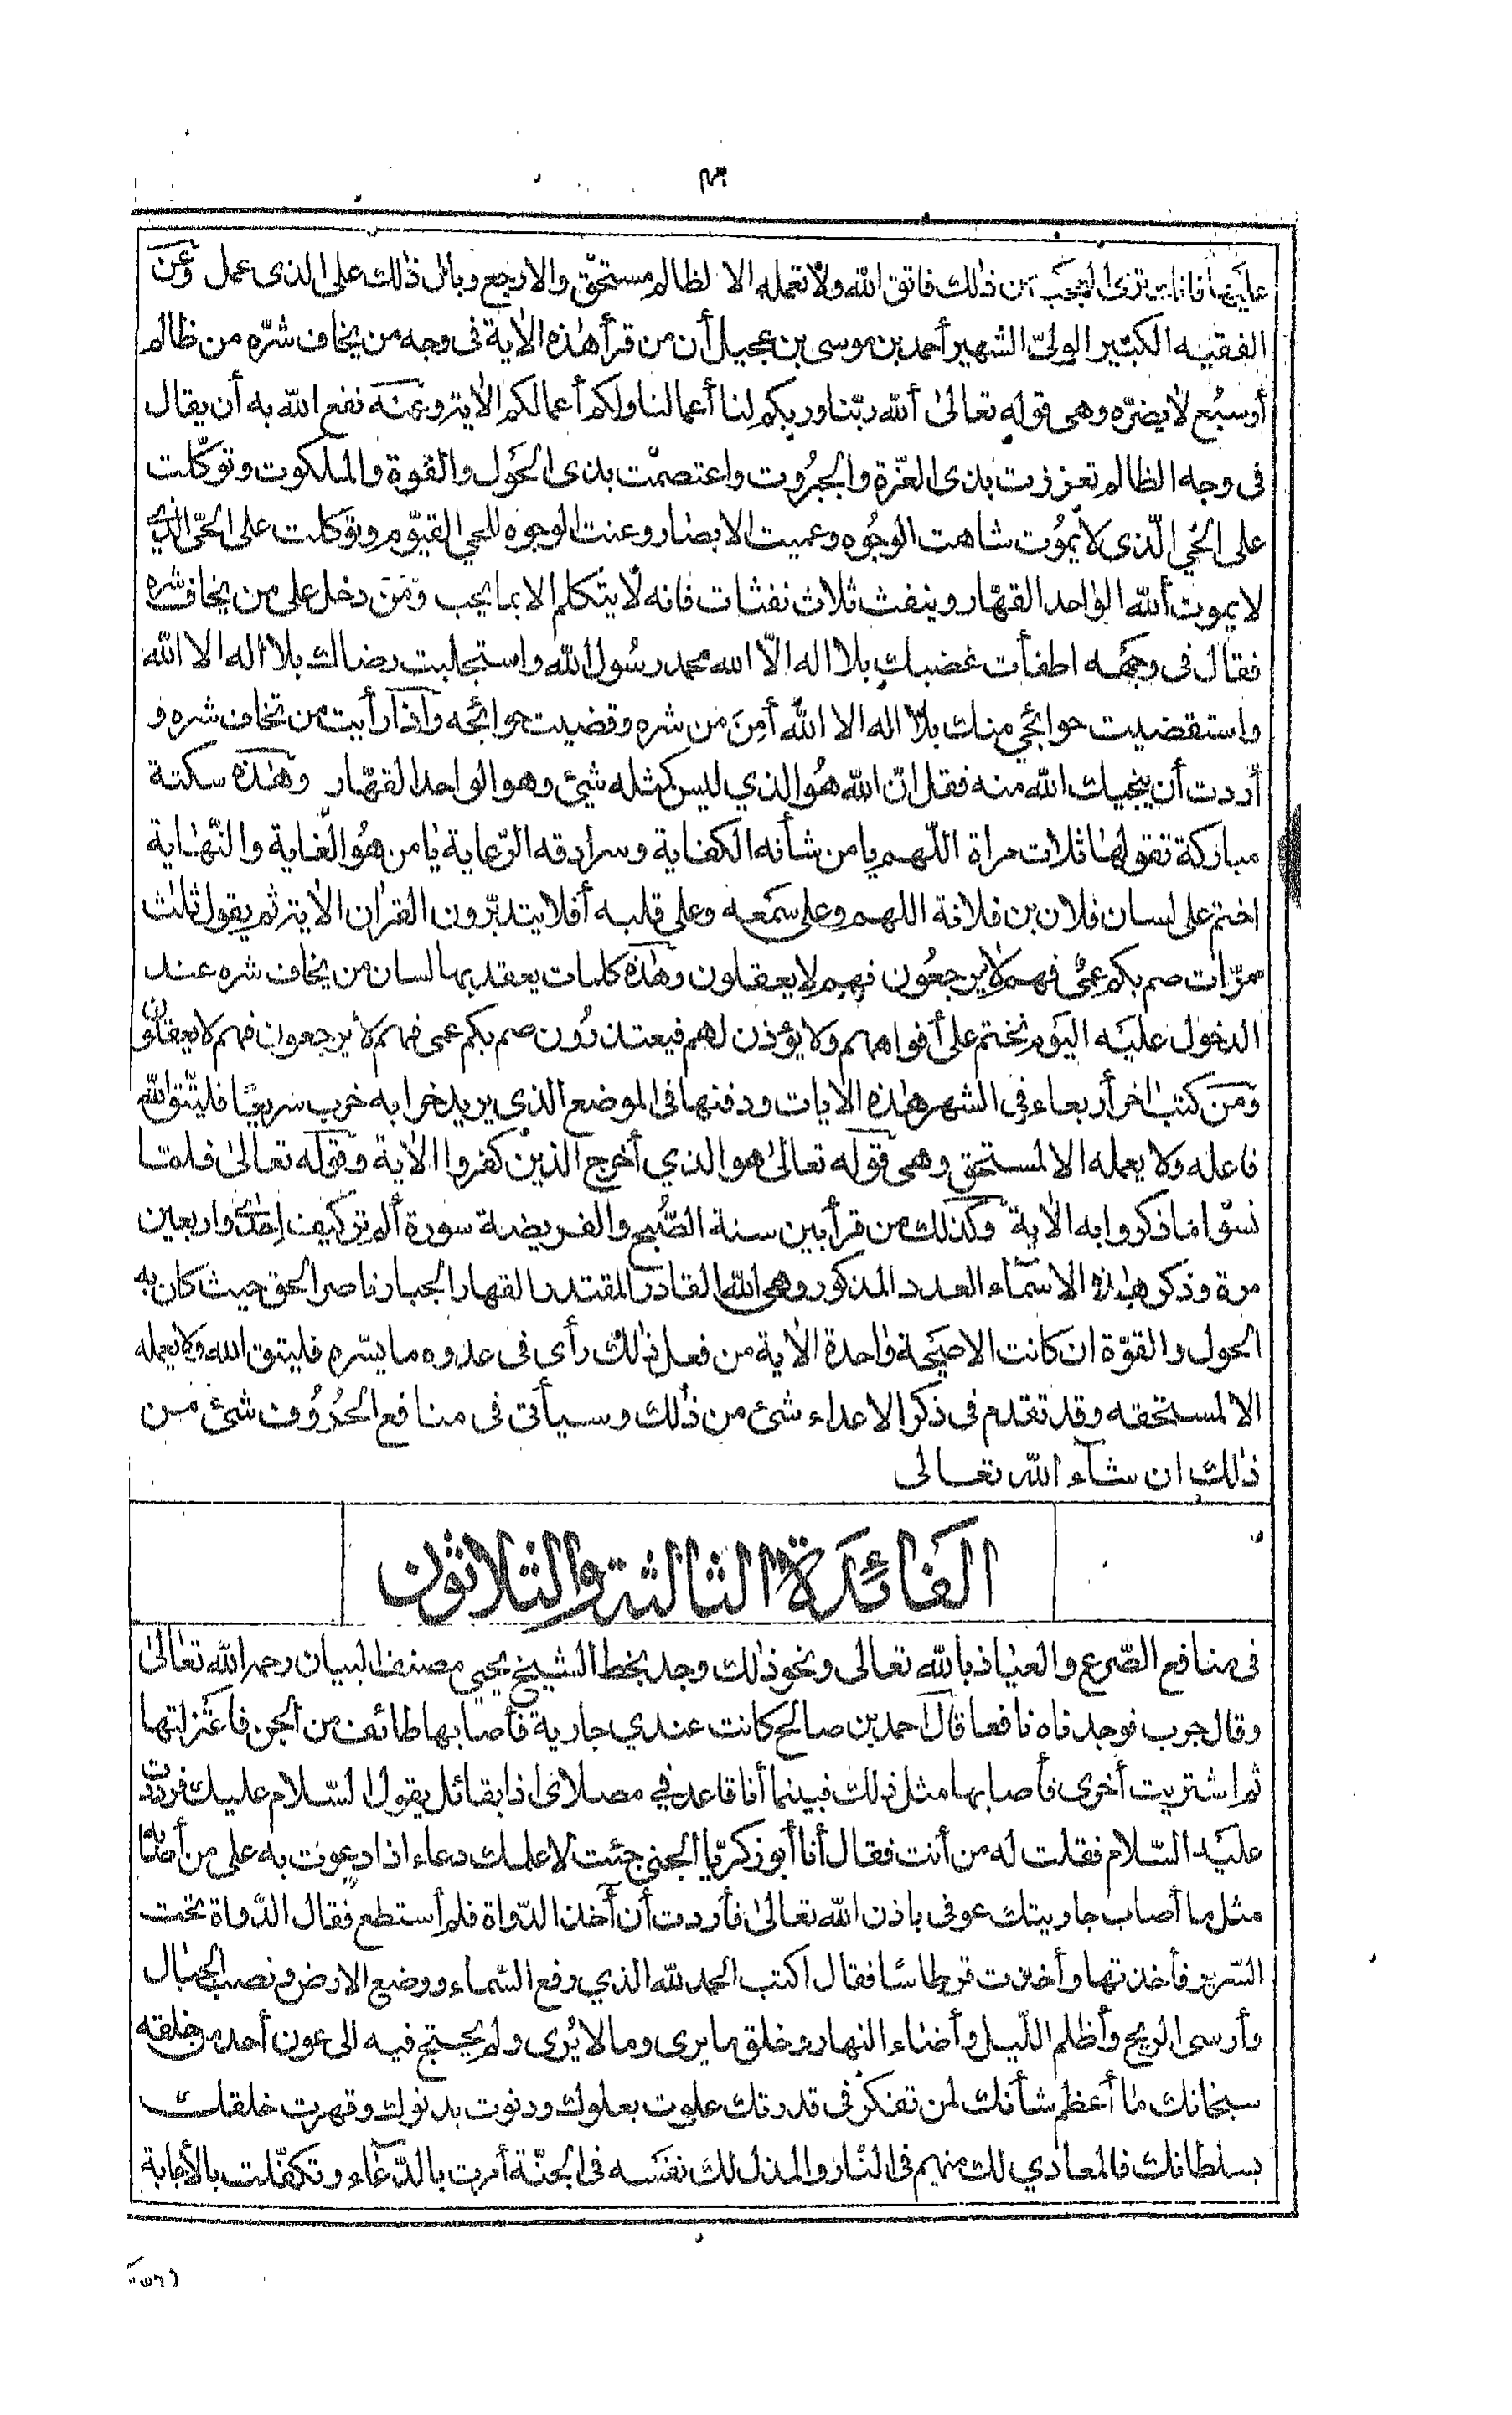 عليها فانك ترى العجب من ذلك فاتق الله ولا تعمله الا لظالم مستحق والا رجع وبال ذلك على الذى عمل وعن
الفقيه الكبير الولىّ الشهير أحمد بن موسى بن عجيل أن من قرأ هذه الآية فى وجه من يخاف شرّه من ظالم
أو سبُع لا يضرّه وهى قوله تعالى الله ربّنا وربكم لنا أعمالنا ولكم أعمالكم الآية وعنه نفع الله به أن يقال
فى وجه الظالم تعززت بذى العزّة والجبرُوت واعتصمت بذى الحَول والقوة والملكوت وتوكّلت
على الحَي الّذى لا يمُوت شاهت الوجُوه وعميت الابصار وعنت الوجوه للحي القيّوم وتوكلت على الحىّ الذي
لا يموت الله الواحد القهّار وينفث ثلاث نفثات فانه لا يتكلم الا بما يحب ومَن دخل على من يخاف شره
فقال فى وجهه اطفأت غضبك بلا اله الّا الله محمد رسُول الله واستجلبت رضاك بلا اله الا الله
واستقضيت حوائجي منك بلا اله الا الله أمِنَ من شره وقضيت حوائجه واذا رأيت من تخاف شره و
أردت أن ينجيك الله منه فقل انّ الله هُو الذي ليس كمثله شئ وهو الواحد القهّار وهذه سكتة
مباركة تقولها ثلاث مراة اللّهم يا من شأنه الكفاية وسرادقه الرّعاية يا من هُو الغاية والنّهاية
اختم على لسان فلان بن فلانة اللهم وعلى سمعه وعلى قلبه أفلا يتدبّرون القرآن الآية ثم يقول ثلث
مرّات صم بكم عمىٌ فهم لا يرجعُون فهم لا يعقلون وهذه كلمات يعقد بها لسان من يخاف شره عند
الدخول عليه اليَوم نختم على أفواههم ولا يؤذن لهم فيعتذرُون صم بكم عمى فهم لا يرجعون فهم لا يعقلون
ومَن كتب آخر أربعاء فى الشهر هذه الآيات ودفنها فى الموضع الذى يريد خرابه خرب سريعًا فليتّق الله
فاعله ولا يعمله الا لمستحق وهى قوله تعالى هو الذي أخرج الذين كفروا الآية وقوله تعالى فلمّا
نسوا ما ذكروا به الآية وكذلك من قرأ بين سنة الصُّبح والفريضة سورة ألم تر كيف احدى واربعين
مرة وذكر هذه الاسماء العدد المذكور وهى الله القادر المقتدر القهار الجبار ناصر الحق حيث كان به
الحول والقوّة ان كانت الا صيحة واحدة الآية من فعل ذلك رأى فى عدوه ما يسّره فليتق الله ولا يعمله
الا لمستحقه وقد تقدم فى ذكر الاعداء شئ من ذلك وسيأتى فى منافع الحُرُوف شئ من
ذلك ان شآء الله تعالى
الفَائدَة الثالثة والثلاثون
فى منافع الصّرع والعياذ بالله تعالى ونحو ذلك وجد بخط الشيخ يحيي مصنف البيان رحمه الله تعالى
وقال جرب فوجدناه نافعا قال احمد بن صالح كانت عندي جارية فأصابها طائف من الجن فاعتزلتها
ثم اشتريت أخرى فأصابها مثل ذلك فبينما أنا قاعد في مصلاى اذا بقائل يقول السّلام عليك فرددت
عليه السّلام فقلت له من أنت فقال أنا أبو زكريّا الجنى جئت لاعلمك دعاء اذا دعوت به على من أصابه
مثل ما أصاب جاريتك عوفى باذن الله تعالى فأردت أن آخذ الدّواة فلم أستطع فقال الدّواة تحت
السّرير فأخذتها وأخذت قرطاسًا فقال اكتب الحمد لله الذي رفع السّماء ووضع الارض ونصب الجبال
وأرسى الريح وأظلم اللّيل وأضاء النهار وخلق ما يرى وما لا يُرى ولم يحتج فيه الى عون أحد من خلقه
سبحانك ما أعظم شأنك لمن تفكر فى قدرتك علوت بعلوك ودنوت بدنوك وقهرت خلقك
بسلطانك فالمعادي لك منهم فى النّار والمذل لك نفسه فى الجنّة أمرت بالدّعاء وتكفّلت بالأجابة